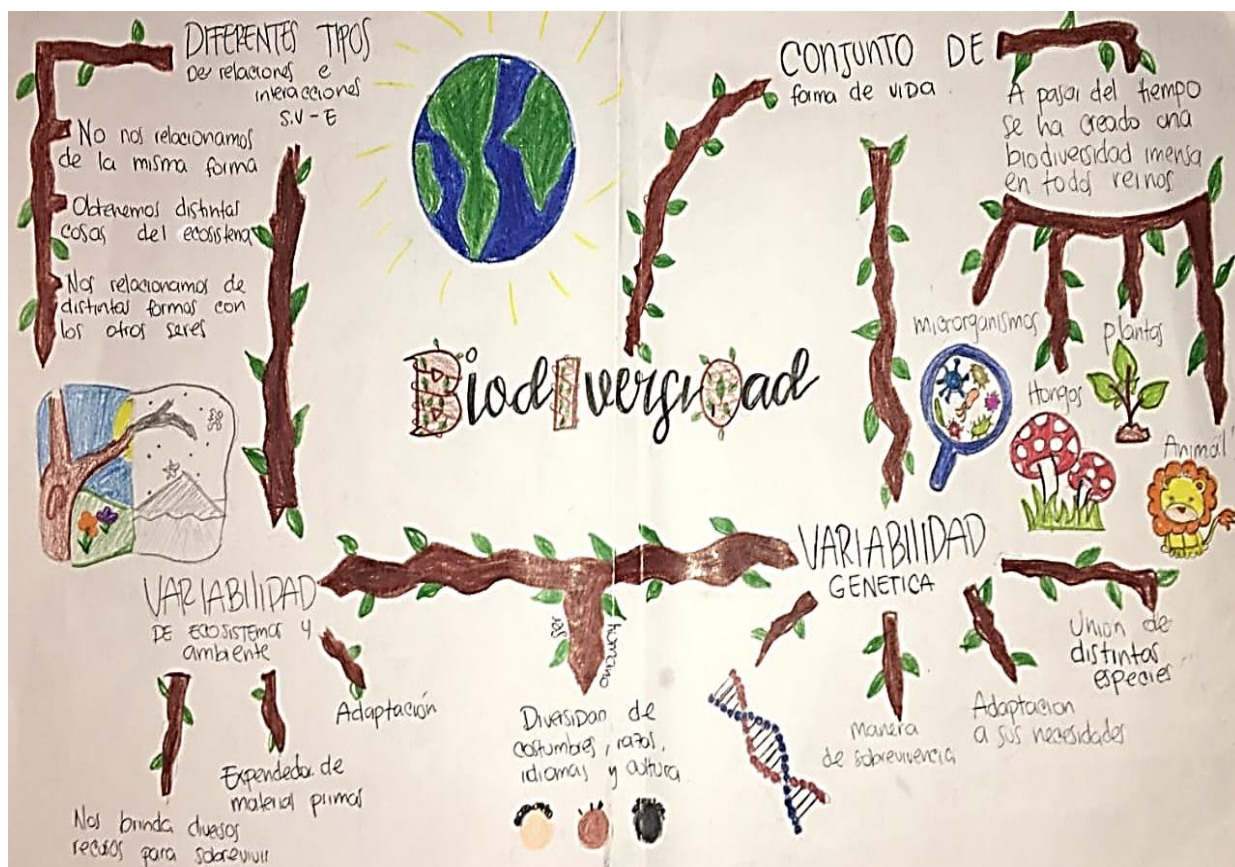 DIFERENTES TIPOS
De relaciones e
interacciones
S.V - E
No nos relacionamos
de la misma forma
Obtenemos distintas
cosas del ecosistema
Nos relacionamos de
distintas formas con
los otros seres
CONJUNTO DE
forma de VIDA.
A pasar del tiempo
se ha creado una
biodiversidad imensa
en todos reinos
microrganismos
Plantas
Hongos
Animal
BiodIversiDad
VARIABILIDAD
DE ECOSISTEMAS Y
ambiente
Adaptación
Expendedor de
material primas
Nos brinda diversos
recursos para sobrevivir
ser humano
Diversidad de
costumbres, razas,
idiomas y cultura
VARIABILIDAD
GENETICA
manera
de sobrevivencia
Adaptacion
a sus necesidades
Union de
distintas
especies